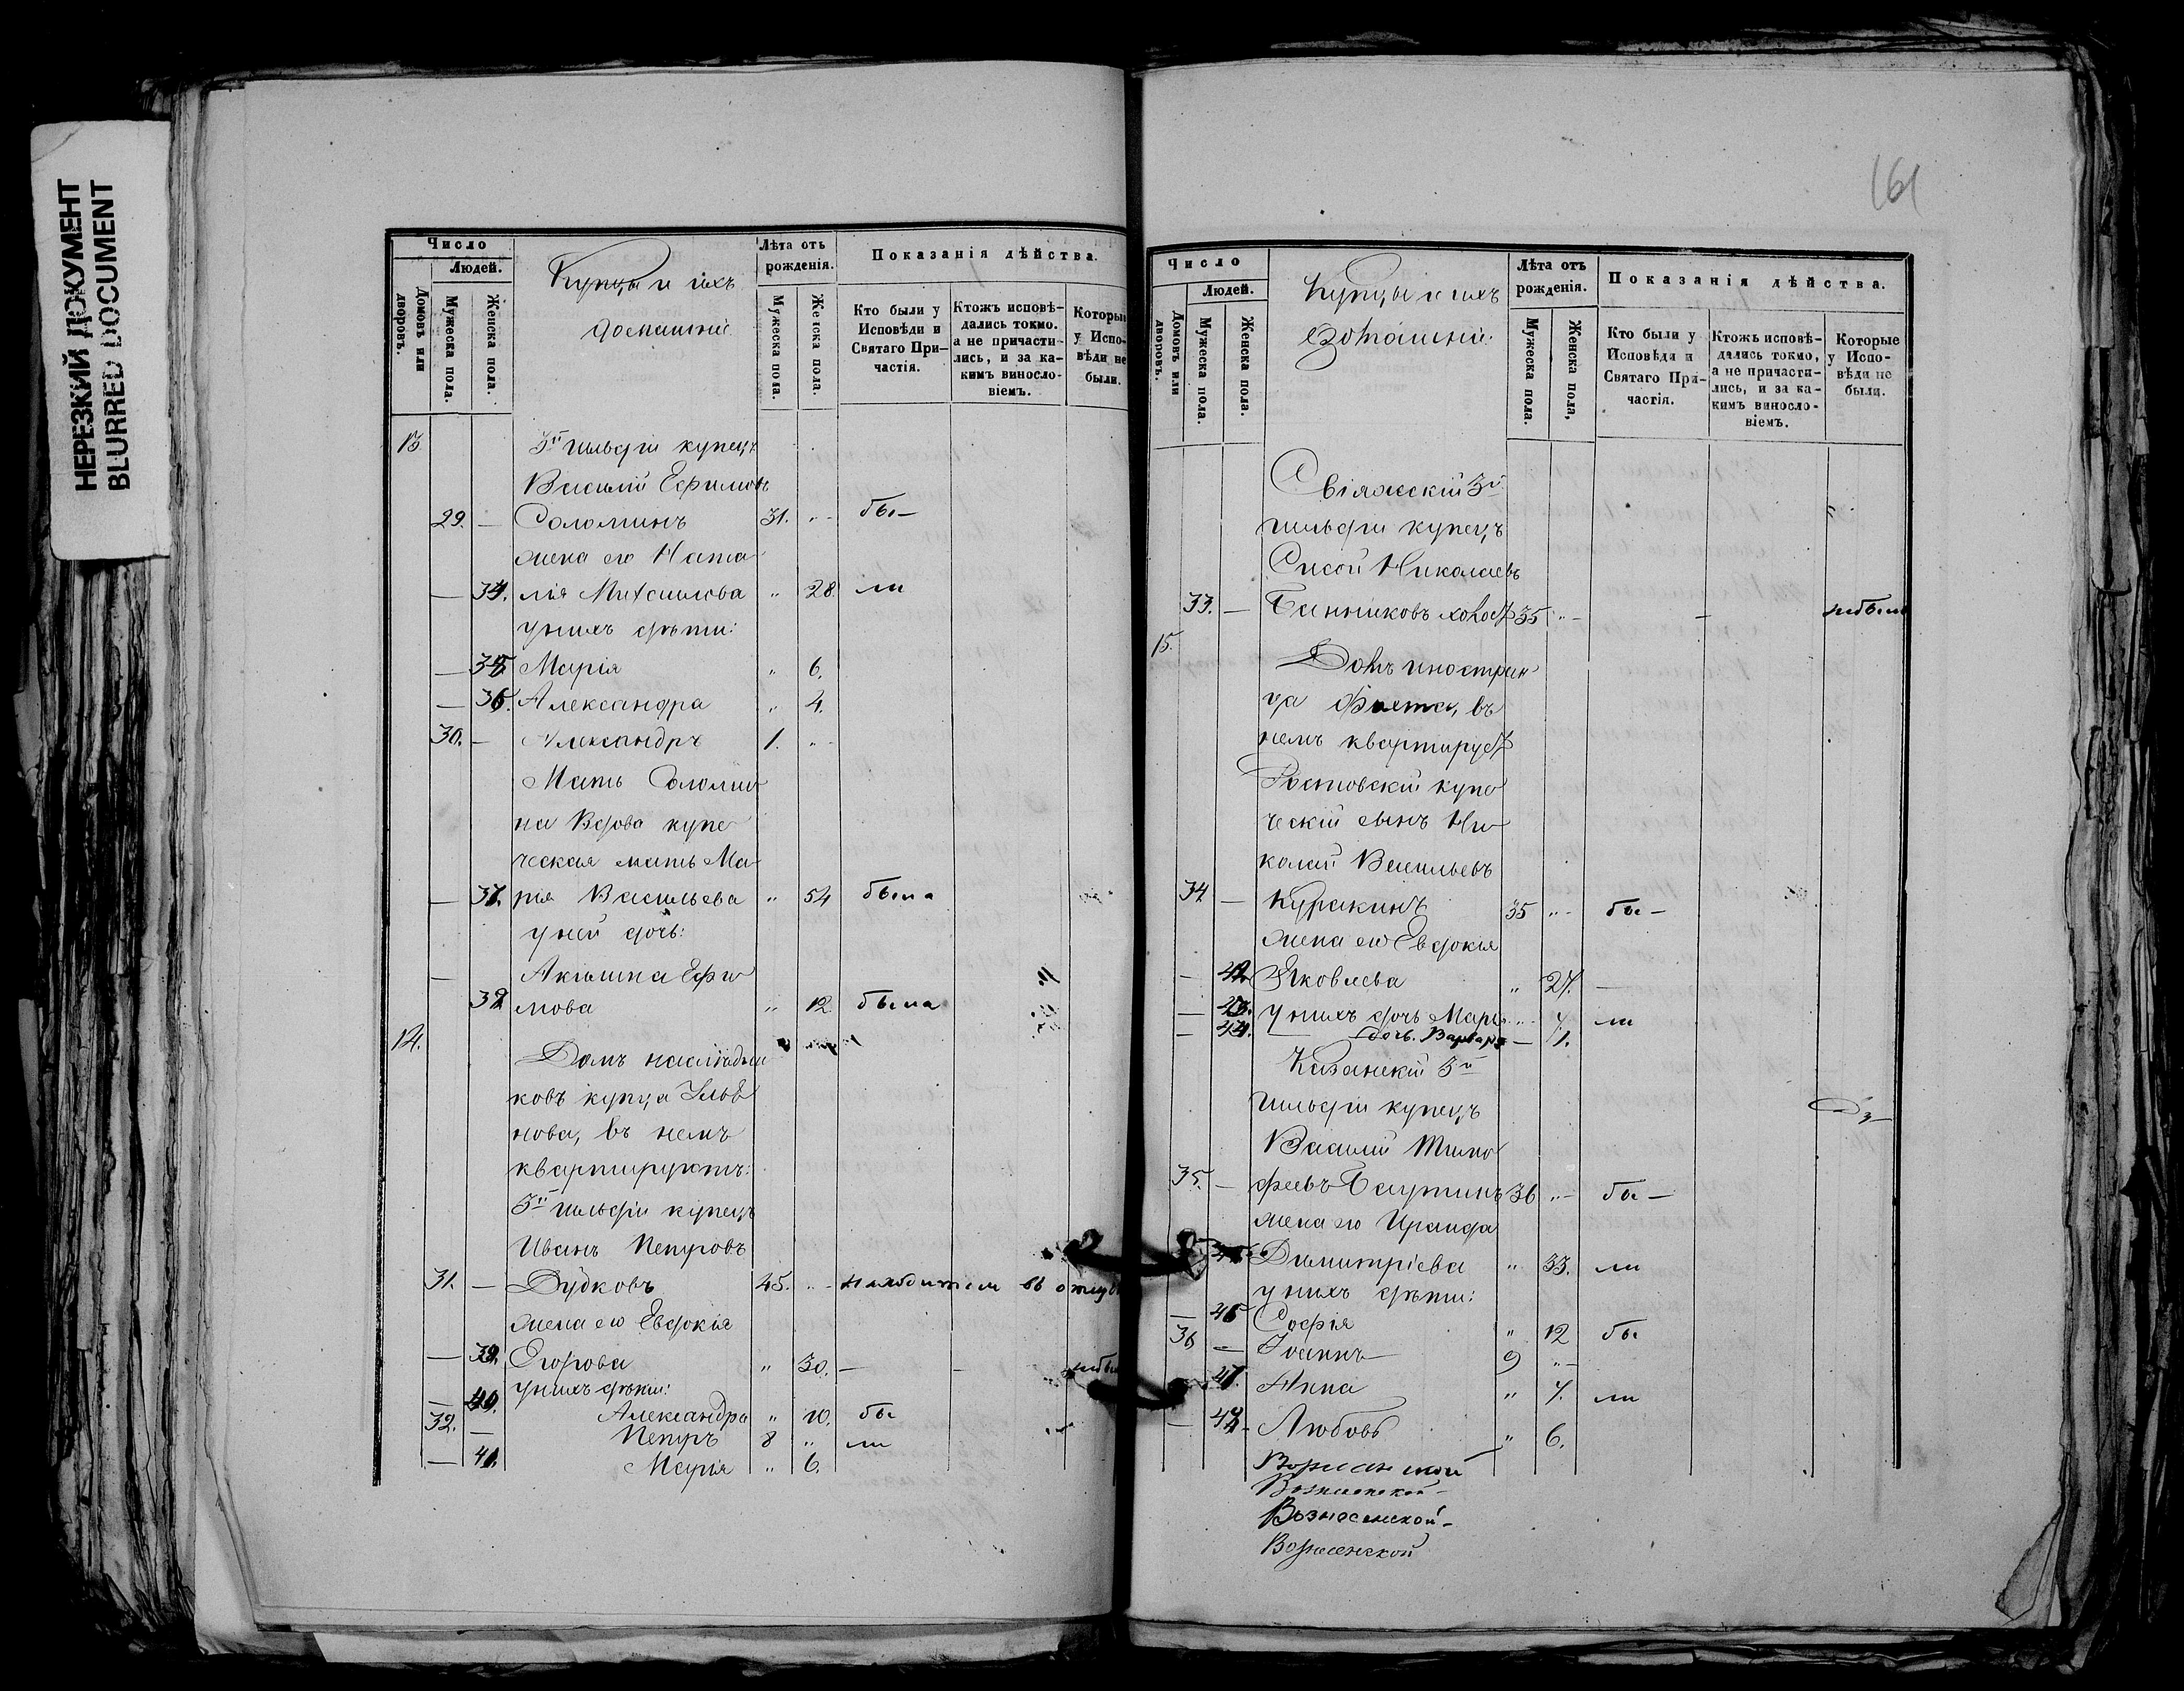 НЕРЕЗКИЙ ДОКУМЕНТ
BLURRED DOCUMENT
Число
Людей.
Домовъ или дворовъ.
Мужеска пола.
Женска пола.
Купцы и ихъ
домашніи.
Лѣта отъ рожденія.
Мужеска пола.
Женска пола.
Показанія дѣйства.
Кто были у Исповѣди и Святаго Причастія.
Ктожъ исповѣ-
дались токмо.
а не причасти-
лись, и за ка-
кимъ виносло-
віемъ.
Которые
у Испо-
вѣди не
были.
13. 3й гильдіи купецъ
Василій Ефимовъ
29. — Соломинъ 31. " — бы—
жена его Ната
— 34. лія Михаилова " 28. ли
у нихъ дѣти:
— 35. Марія " 6.
— 36. Александра " 4.
30. — Александръ 1. " —
Мать Соломи
на Вдова купе
ческая мать Ма-
— 37. рія Васильева " 54 была
у ней дочь:
— Акилина Ефи
38 мова " 12. была
14. Домъ наслѣдни
ковъ купца
нова, въ немъ
квартируютъ:
3й гильдіи купецъ
Иванъ Петровъ
31. — Дудковъ 45. " — находится въ
жена его Евдокія
— 39. Егорова " 30. — —
у нихъ дѣти:
— 40. Александра " 10. бы
32. — Петръ 8 " ли
— 41. Марія " 6.
161
Число
Людей.
Домовъ или дворовъ.
Мужеска пола.
Женска пола.
Купцы и ихъ
домашніи.
Лѣта отъ рожденія.
Мужеска пола.
Женска пола,
Показанія дѣйства.
Кто были у Исповѣди и Святаго Причастія.
Ктожъ исповѣ-
дались токмо,
а не причасти-
лись, и за ка-
кимъ винослo-
віемъ.
Которые
у Испо-
вѣди не
были.
Свіяжскій 3й
гильдіи купецъ
Сысой Николаевъ
33. — Банниковъ холост 35 " — — небылъ
15. Домъ иностран
ца Фохта, въ
немъ квартирует
Ростовскій купе
ческій сынъ Ни
колай Васильевъ
34. — Куракинъ 35 " — бы—
жена его Евдокія
— 42. Яковлева " 27. —
— 43. у нихъ дочь Марія " 7. ли
— 44. дочь. Варвара — 1.
Казанскій 3й
гильдіи купецъ
Василій Тимо
35. — феевъ 36 " — бы—
жена его Ираида
45. Димитріева " 33. ли
у нихъ дѣти:
— 46 Софія " 12 бы
36 — Іоаннъ 9 " —
47. Анна " 7. ли
— 48. Любовь " 6.
Вознесенской
Вознесенской-
Вознесенской-
Вознесенской